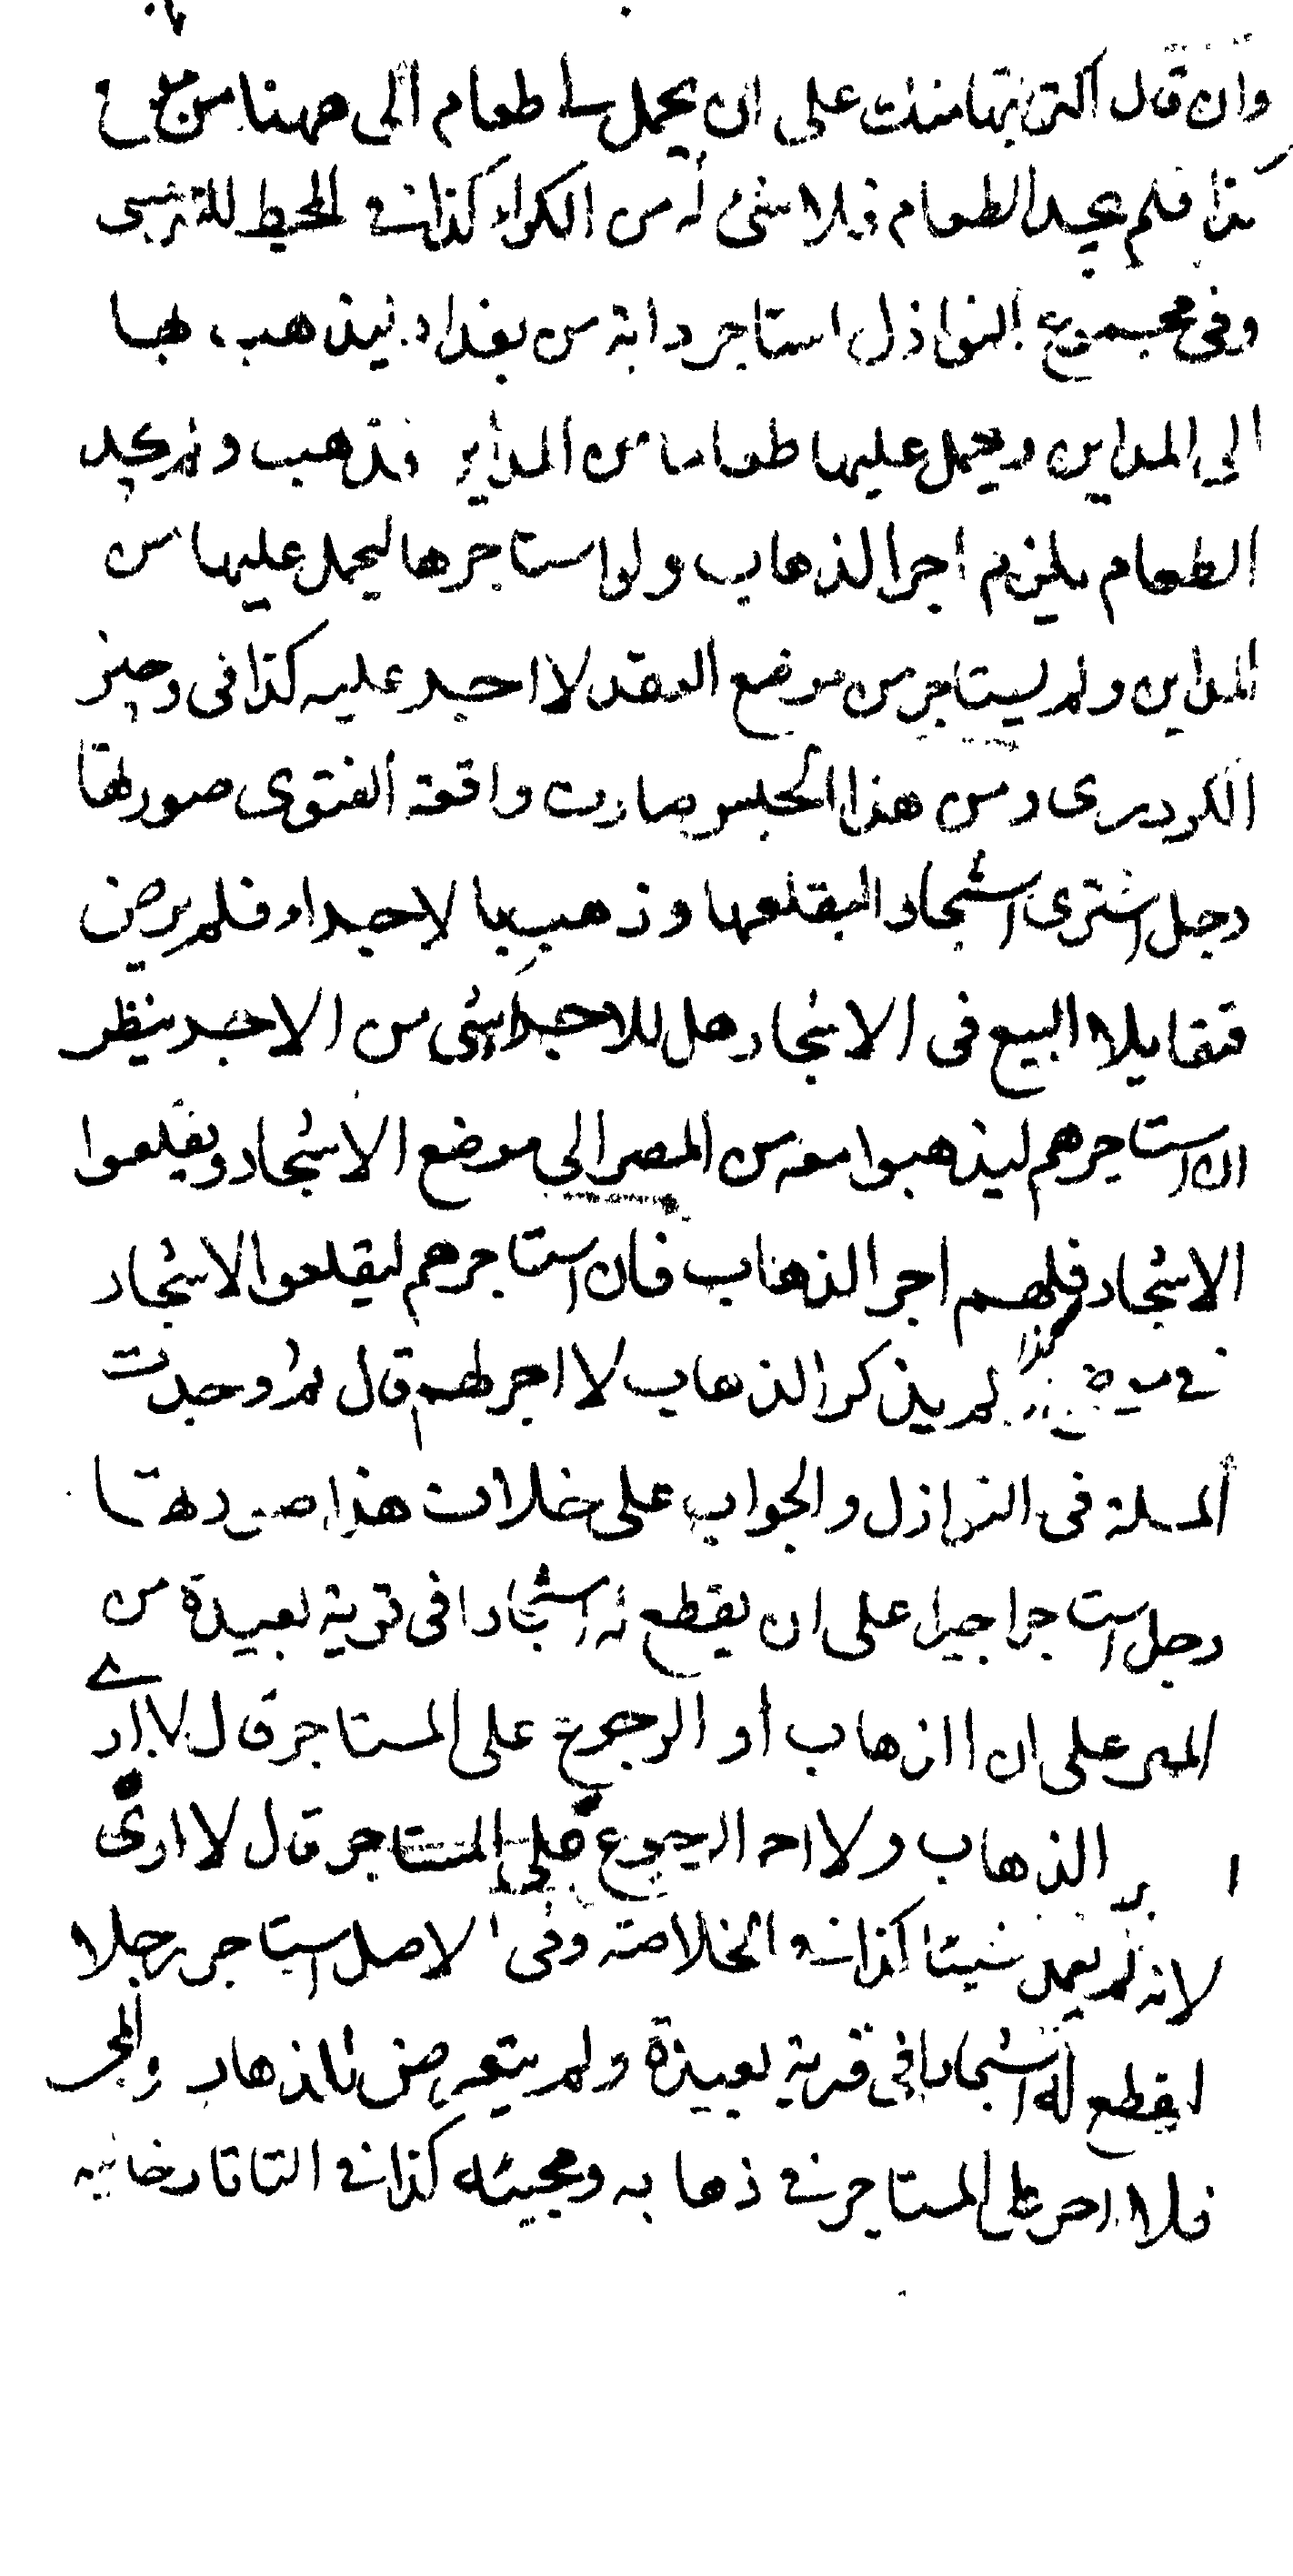 وان قال اكتريتها منك على ان يحمل لي طعام الى ههنا من موضع
كذا فلم يجد الطعام فلا شئ له من الكراء كذا في المحيط للسرخسي
وفي مجموع النوازل استاجر دابة من بغداد ليذهب بها
الى المداين ويحمل عليها طعاما من المداين فذهب ولم يجد
الطعام يلزم اجر الذهاب ولو استاجرها ليحمل عليها من
المداين ولم يستاجر من موضع العقد لا اجر عليه كذا في وجيز
الكردرى ومن هذا الجنس صارت واقعة الفتوى صورتها
رجل اشترى اشجارا ليقلعها وذهب بالاجراء فلم يرض
فتقايلا البيع في الاشجار هل للاجراء شئ من الاجر ينظر
ان استاجرهم ليذهبوا معه من المصر الى موضع الاشجار ويقلعوا
الاشجار فلهم اجر الذهاب فان استاجرهم ليقلعوا الاشجار
في موضع كذا لم يذكر الذهاب لا اجر لهم قال ثم وجدت
المسئلة في النوازل والجواب على خلاف هذا صورتها
رجل استاجر اجيرا على ان يقطع له اشجارا في قرية بعيدة من
المصر على ان الذهاب او الرجوع على المستاجر قال لا ارى
الذهاب ولا اجر الرجوع على المستاجر قال لا ارى
لانه لم يعمل شيئا كذا في الخلاصة وفي الاصل استاجر رجلا
ليقطع له اشجارا في قرية بعيدة ولم يتعرض للذهاب والمجئ
فلا اجر على المستاجر في ذهابه ومجيئه كذا في التاتارخانيه